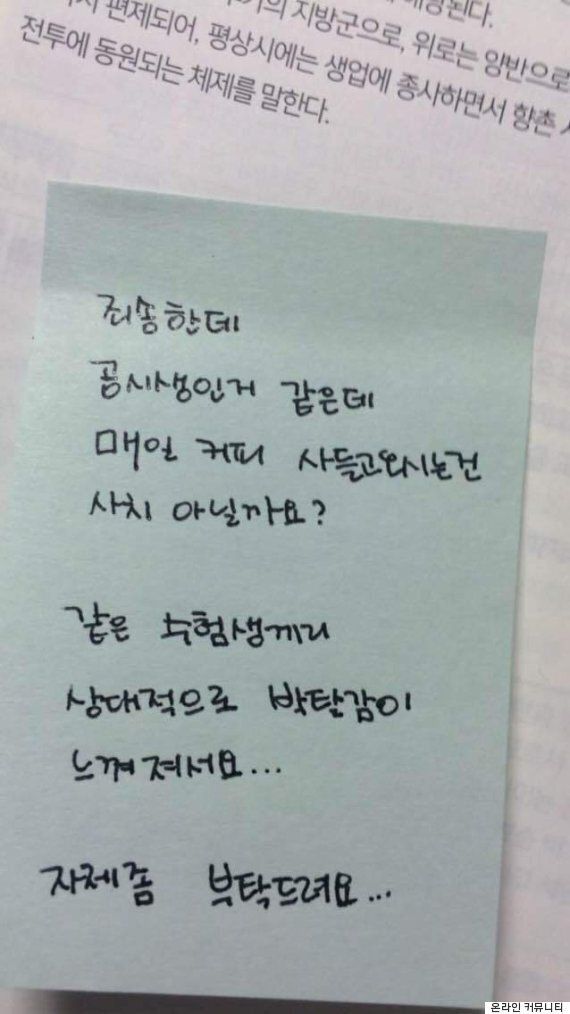 편제되어, 평상시에는 생업에 종사하면서 향촌
의 지방군으로, 위로는 양반으로
전투에 동원되는 체제를 말한다.
죄송한데
공시생인거 같은데
매일 커피 사들고와시는건
사치 아닐까요?
같은 수험생끼리
상대적으로 박탈감이
느껴져서요...
자제좀 부탁드려요...
온라인 커뮤니티